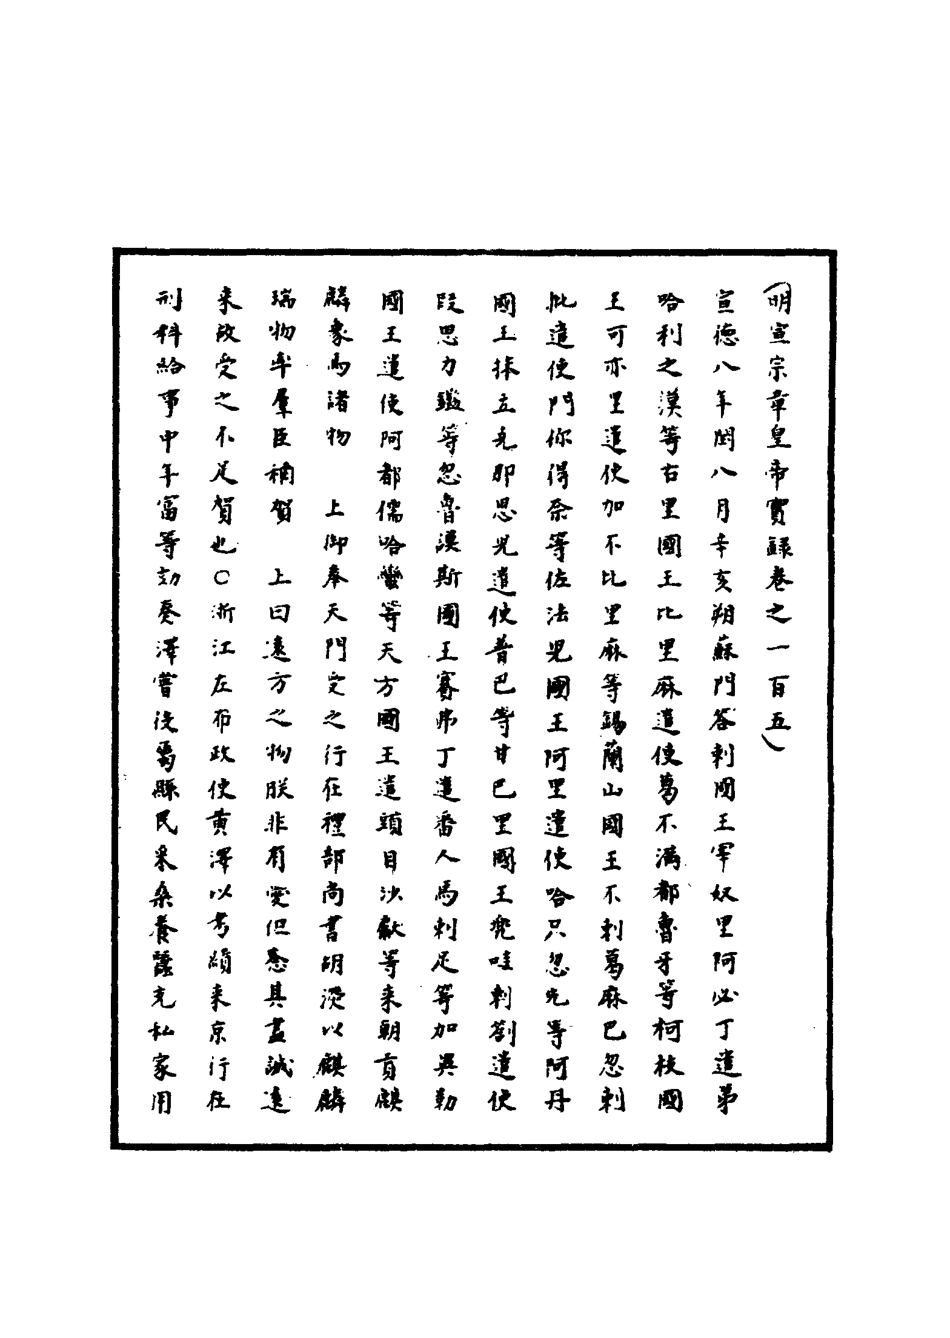 （明宣宗章皇帝實録卷之一百五）
宣德八年閏八月辛亥朔蘇門答剌國王宰奴里阿必丁遣弟
哈利之漢等古里國王比里麻遣使葛不滿都魯牙等柯枝國
王可亦里遣使加不比里麻等錫蘭山國王不剌葛麻巴忽剌
批遣使門你得奈等佐法兒國王阿里遣使哈只忽先等阿丹
國王抹立克那思兒遣使普巴等甘巴里國王兜哇剌劄遣使
段思力鑑等忽魯謨斯國王賽弗丁遣番人馬剌足等加異勒
國王遣使阿都儒哈蠻等天方國王遣頭目沙獻等来朝貢麒
麟象馬諸物　上御奉天門受之行在禮部尚書胡濙以麒麟
瑞物率羣臣稱賀　上曰遠方之物朕非有愛但念其盡誠遠
来故受之不足賀也○浙江左布政使黄澤以考績来京行在
刑科給事中年富等劾奏澤嘗役屬縣民采桑養蠶充私家用